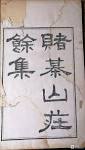 賭棊山莊
餘集